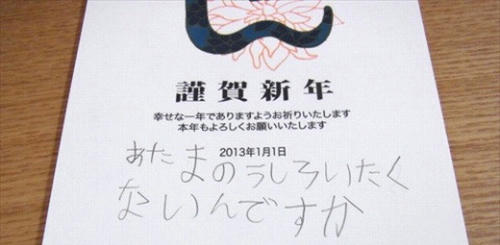 謹賀新年
幸せな一年でありますようお祈りいたします
本年もよろしくお願いいたします
2013年1月1日
あたまのうしろいたく
ないんですか